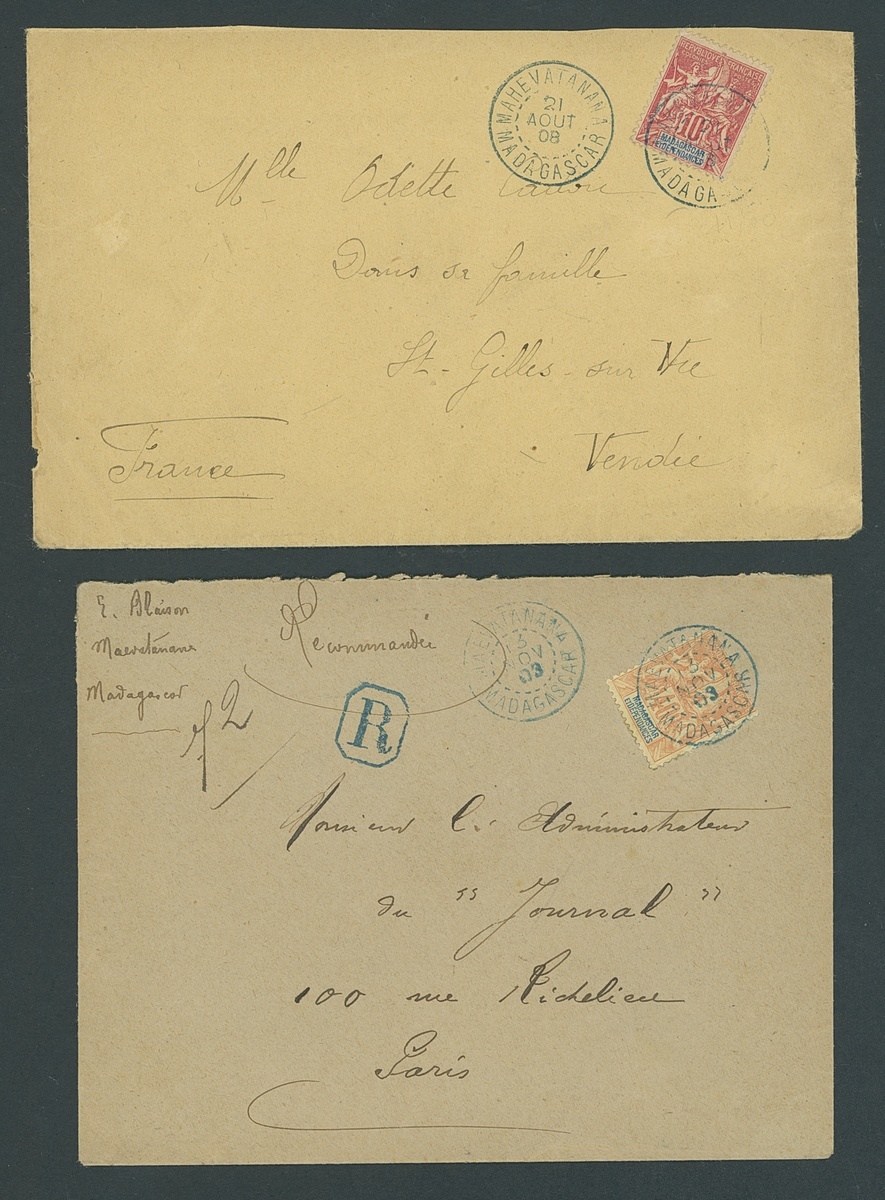 MAHEVATANANA
21
AOUT
08
MADAGASCAR
REPUBLIQUE FRANÇAISE
10
MADAGASCAR
ET DEPENDANCES
MADAGA
Mlle Odette
Dans sa famille
St-Gilles-sur Vie
Vendée
France
E. Blaison
Maevatanana
Madagascar
Recommandée
R
MAEVATANANA
3
NOV
03
MADAGASCAR
MAEVATANANA
3
NOV
03
MADAGASCAR
MADAGASCAR
ET DEPENDANCES
Monsieur l' Administrateur
du "Journal"
100 rue Richelieu
Paris